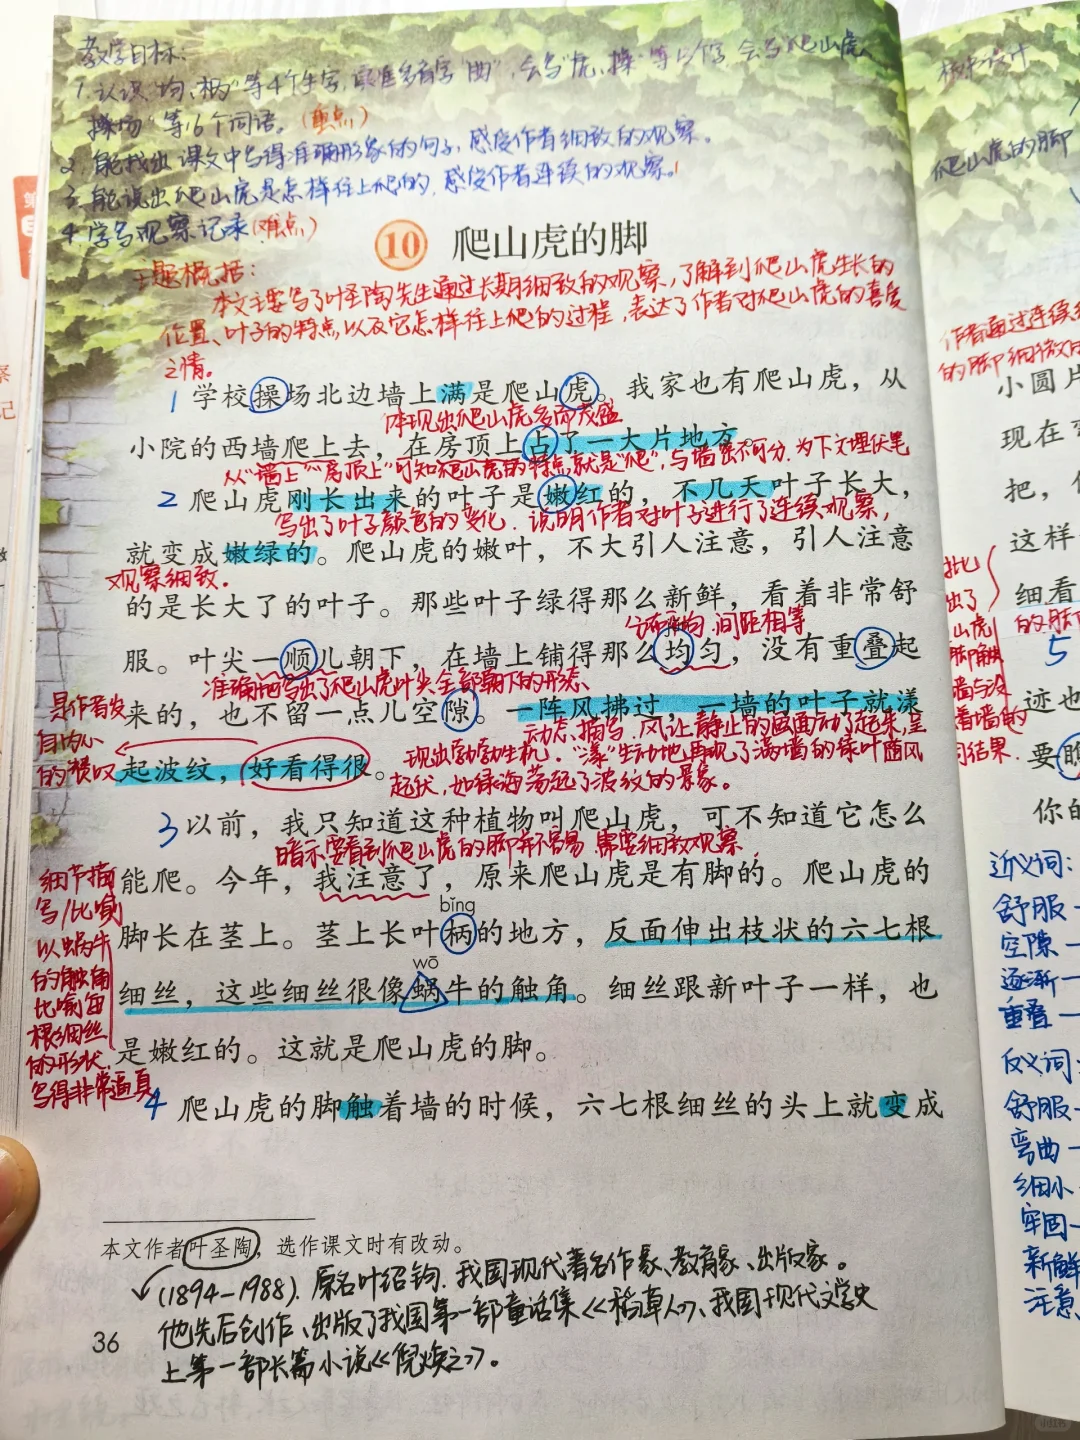 教学目标:
1.认识"均、柄"等4个生字,读准多音字"曲",会写"虎、操"等15个字,会写"爬山虎、
操场"等16个词语。(重点)
2.能找出课文中写得准确形象的句子,感受作者细致的观察。
3.能说出爬山虎是怎样往上爬的,感受作者连续的观察。
4.学写观察记录(难点)
10 爬山虎的脚
主题概括:
本文主要写了叶圣陶先生通过长期细致的观察,了解到爬山虎生长的
位置、叶子的特点以及它怎样往上爬的过程,表达了作者对爬山虎的喜爱
之情。
1 学校操场北边墙上满是爬山虎。我家也有爬山虎,从
体现出爬山虎多而茂盛
小院的西墙爬上去,在房顶上占了一大片地方。
从"墙上""房顶上"可知爬山虎的特点就是"爬",与墙密不可分.为下文埋伏笔
2 爬山虎刚长出来的叶子是嫩红的,不几天叶子长大,
写出了叶子颜色的变化.说明作者对叶子进行了连续观察,
就变成嫩绿的。爬山虎的嫩叶,不大引人注意,引人注意
观察细致.
的是长大了的叶子。那些叶子绿得那么新鲜,看着非常舒
分布平均,间距相等
服。叶尖一顺儿朝下,在墙上铺得那么均匀,没有重叠起
准确地写出了爬山虎叶尖全部朝下的形态、
来的,也不留一点儿空隙。一阵风拂过,一墙的叶子就漾
动态描写.风让静止的画面动了起来,呈
起波纹,好看得很。
现出勃勃生机."漾"生动地再现了满墙的绿叶随风
起伏,如绿海荡起了波纹的景象。
是作者发
自内心
的赞叹
3 以前,我只知道这种植物叫爬山虎,可不知道它怎么
暗示要看到爬山虎的脚并不容易 需要细致观察
能爬。今年,我注意了,原来爬山虎是有脚的。爬山虎的
bǐng
脚长在茎上。茎上长叶柄的地方,反面伸出枝状的六七根
wō
细丝,这些细丝很像蜗牛的触角。细丝跟新叶子一样,也
是嫩红的。这就是爬山虎的脚。
细节描
写/比喻
以蜗牛
的触角
比喻每
根细丝
的形状.
写得非常逼真
4 爬山虎的脚触着墙的时候,六七根细丝的头上就变成
本文作者叶圣陶,选作课文时有改动。
(1894-1988).原名叶绍钧.我国现代著名作家、教育家、出版家。
他先后创作、出版了我国第一部童话集《稻草人》、我国现代文学史
上第一部长篇小说《倪焕之》。
36
板书设计
爬山虎的脚
作者通过连续
的脚细微
小圆片
现在
把,
这样
细看
的脚
5
迹也
要瞧
你的
近义词:
舒服—
空隙—
逐渐—
重叠—
反义词:
舒服—
弯曲—
细小
牢固—
新鲜
注意